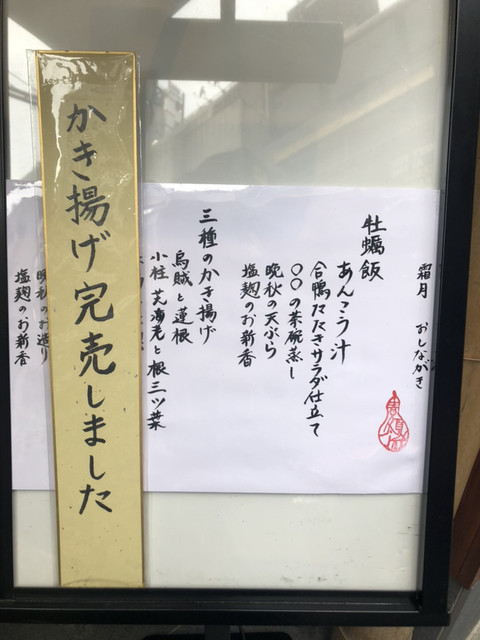 霜月 おしながき
牡蠣飯
あんこう汁
合鴨たたきサラダ仕立て
〇〇の茶碗蒸し
晩秋の天ぷら
塩麹のお新香
三種のかき揚げ
烏賊と蓮根
小柱 芝海老と根三ツ葉
かき揚げ完売しました
晩秋のお造り
塩麹のお新香